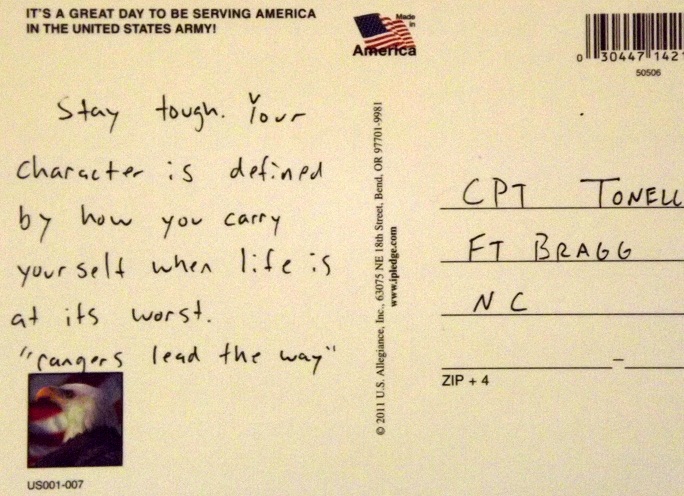 IT'S A GREAT DAY TO BE SERVING AMERICA
IN THE UNITED STATES ARMY!
Made
in
America
0 30447 1421
50506
Stay tough. Your
character is defined
by how you carry
yourself when life is
at its worst.
"rangers lead the way"
US001-007
© 2011 U.S. Allegiance, Inc., 63075 NE 18th Street, Bend, OR 97701-9981
www.ipledge.com
CPT TONELL
FT BRAGG
NC
–
ZIP + 4